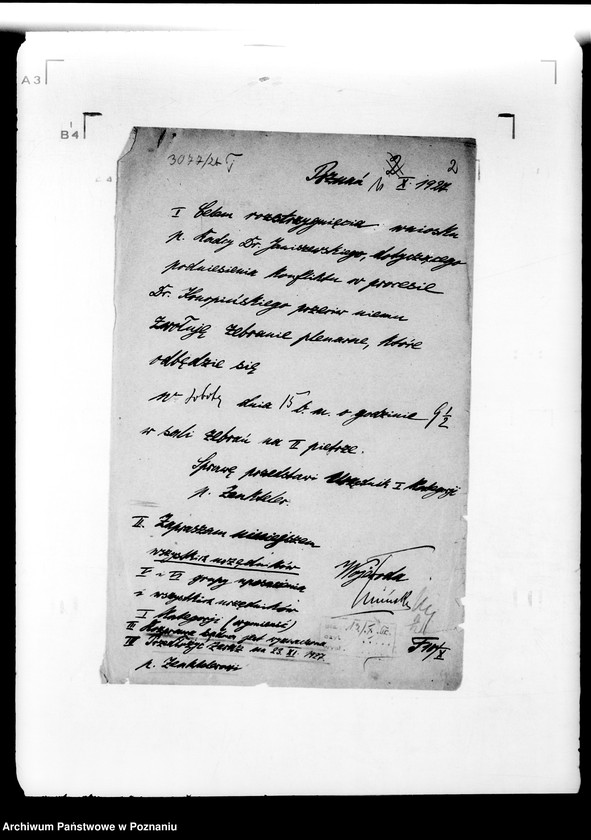 A3
B4
3077/27 I
2
Poznań X. 1927.
I Celem rozstrzygnięcia wniosku
p. Radcy Dr. Janiszewskiego, dotyczącego
podniesienia konfliktu w procesie
Dr. Konopińskiego przeciw niemu
zwołuję zebranie plenarne, które
odbędzie się
w sobotę dnia 15 b. m. o godzinie 9 1/2
w sali zebrań na II piętrze.
Sprawę przedstawi Urzędnik I kategorji
p. Zenkteler.
II. Zapraszam niniejszem
wszystkich urzędników
V i VI grupy uposażenia
i wszystkich urzędników
I kategorji (wymienić)
III Rozprawa jest wyznaczona
na 23. XI. 1927.
IV Przedłożyć zaraz
p. Zenktelerowi
Wojewoda
X
Archiwum Państwowe w Poznaniu